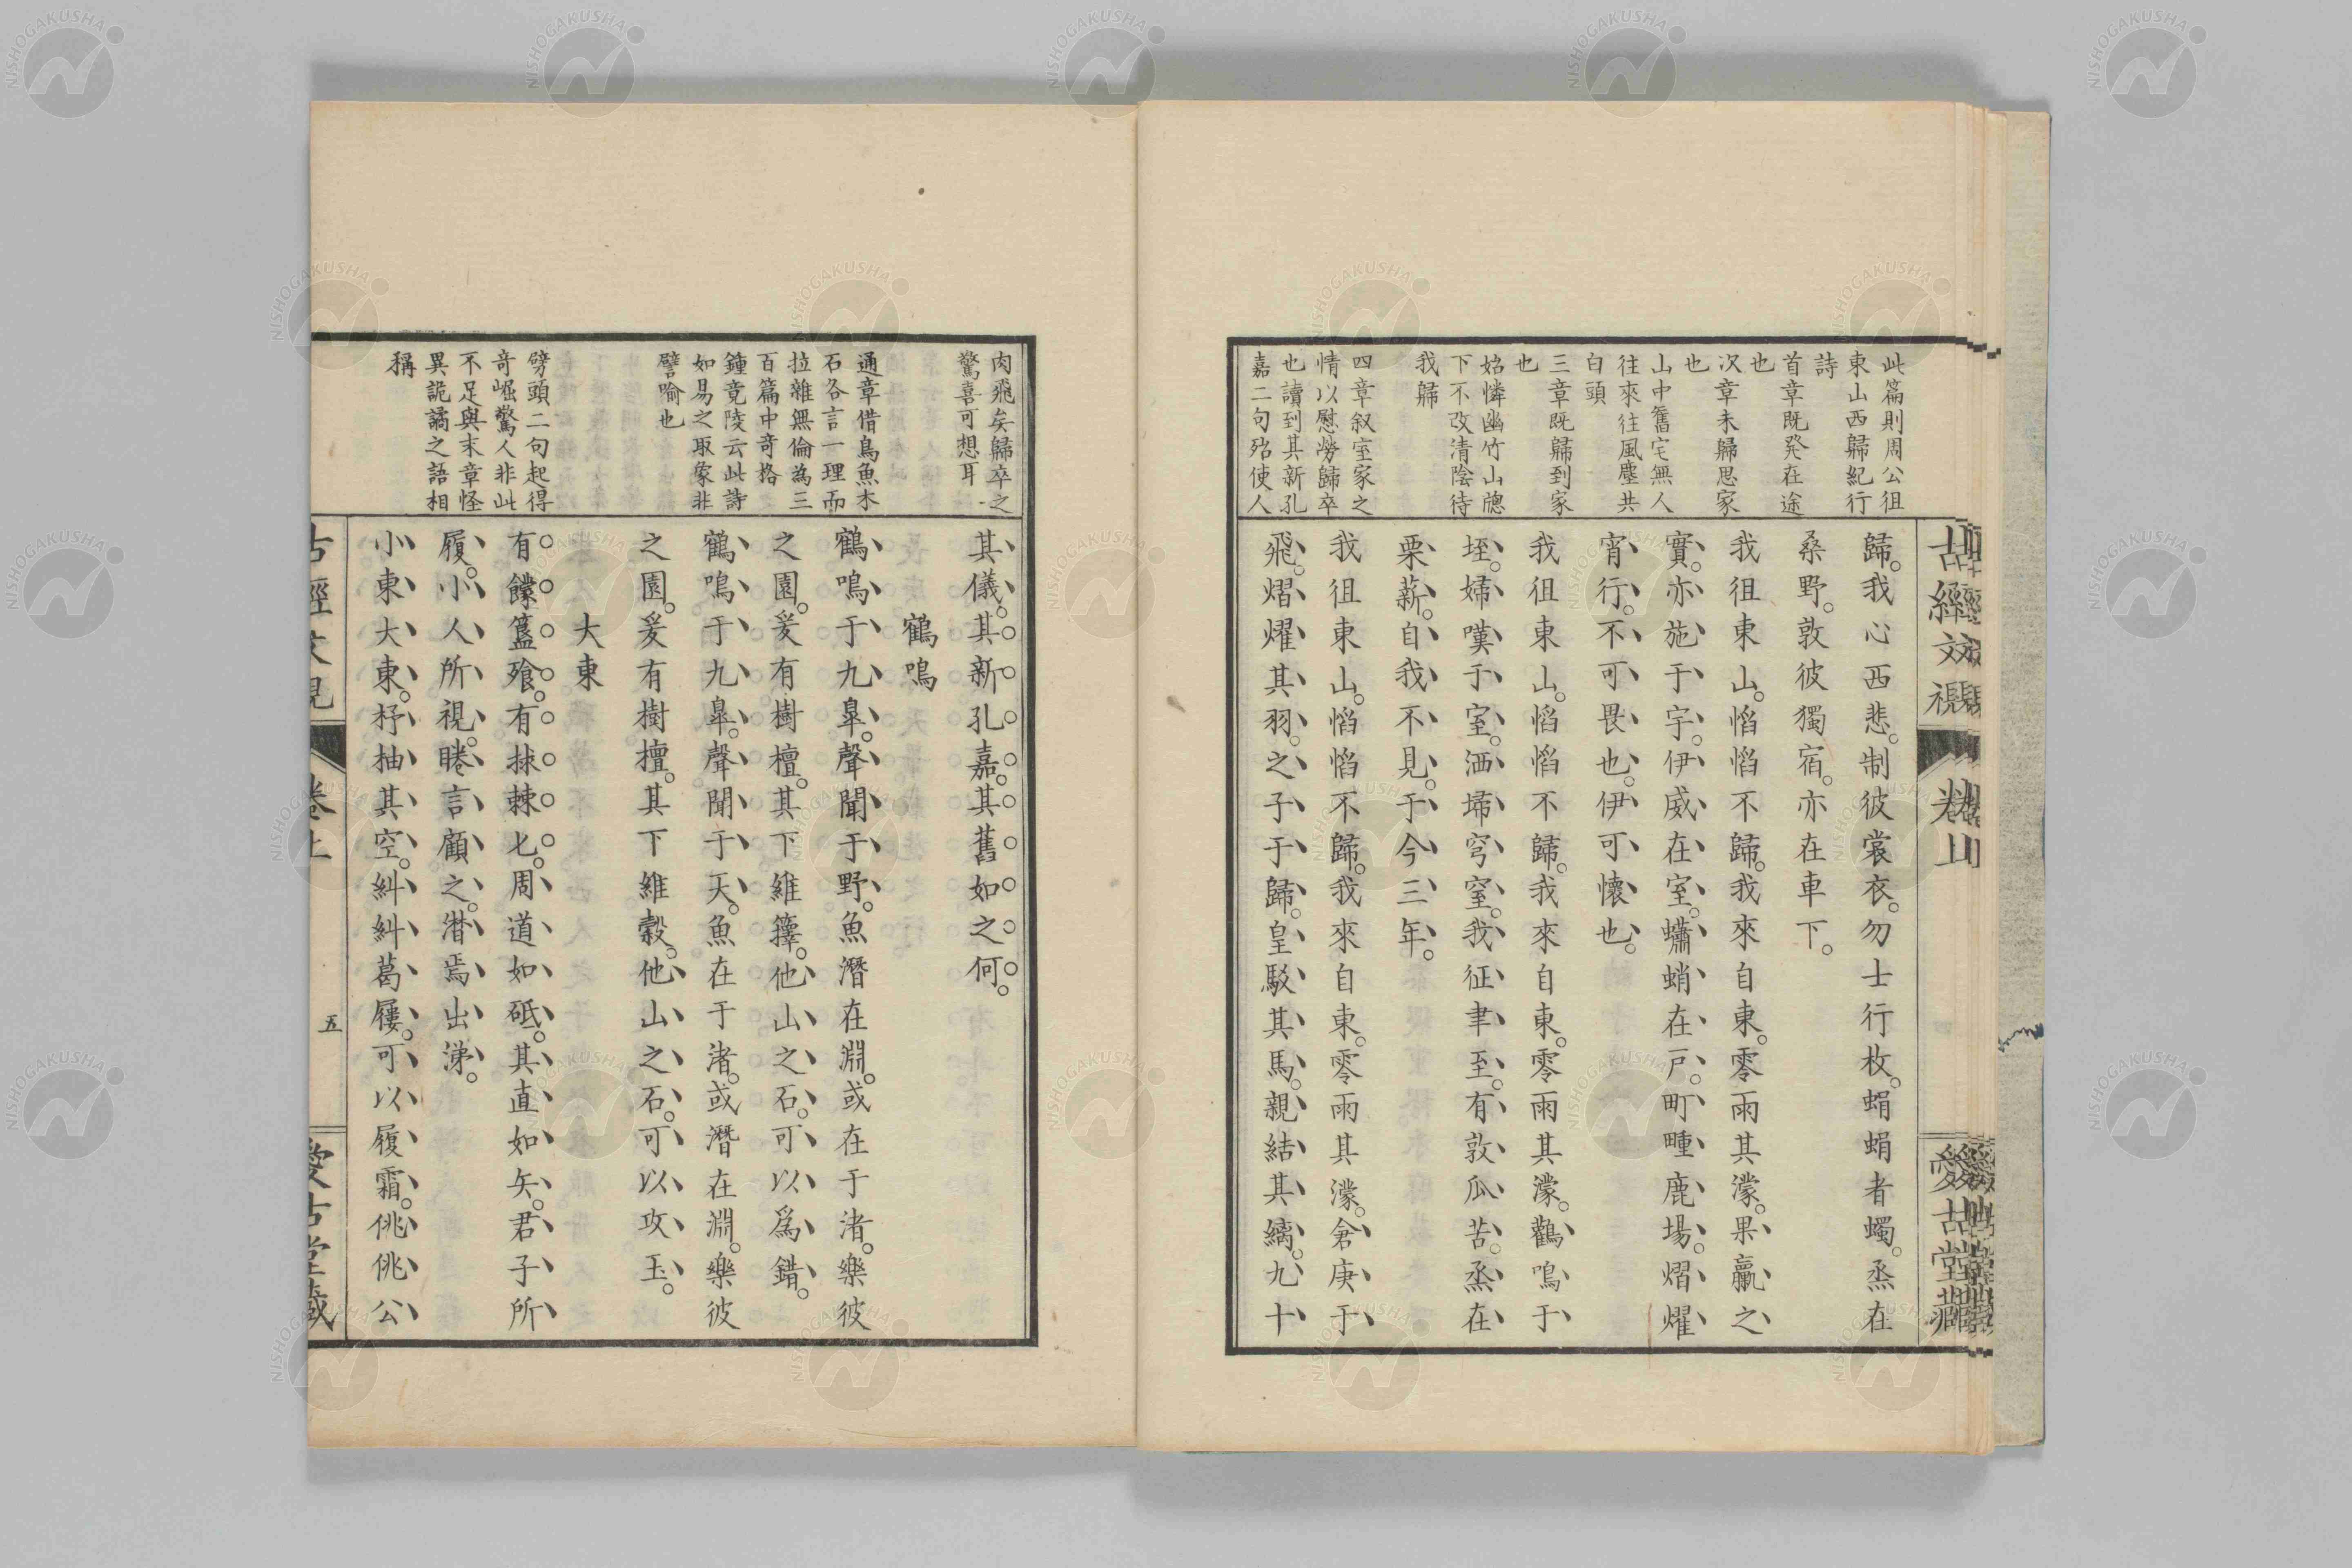 此篇則周公徂
東山西歸紀行
詩
首章既発在途
也
次章未歸思家
也
山中舊宅無人
往來往風塵共
白頭
三章既歸到家
也
姑憐幽竹山牕
下不改清陰待
我歸
四章叙室家之
情以慰勞歸卒
也讀到其新孔
嘉二句殆使人
歸。我心西悲。制彼裳衣。勿士行枚。蜎蜎者蠋。烝在
桑野。敦彼獨宿。亦在車下。
我徂東山。慆慆不歸。我來自東。零雨其濛。果臝之
實。亦施于宇。伊威在室。蠨蛸在戸。町畽鹿場。熠燿
宵行。不可畏也。伊可懷也。
我徂東山。慆慆不歸。我來自東。零雨其濛。鸛鳴于
垤。婦嘆于室。洒埽穹窒。我征聿至。有敦瓜苦。烝在
栗薪。自我不見。于今三年。
我徂東山。慆慆不歸。我來自東。零雨其濛。倉庚于
飛。熠燿其羽。之子于歸。皇駁其馬。親結其縭。九十
古經文視
卷上
愛古堂藏
肉飛矣歸卒之
驚喜可想耳
通章借鳥魚木
石各言一理而
拉雜無倫為三
百篇中奇格
鍾竟陵云此詩
如易之取象非
譬喻也
劈頭二句起得
奇崛驚人非此
不足與末章怪
異詭譎之語相
稱
其儀。其新孔嘉。其舊如之何。
鶴鳴
鶴鳴于九皐。聲聞于野。魚潛在淵。或在于渚。樂彼
之園。爰有樹檀。其下維蘀。他山之石。可以爲錯。
鶴鳴于九皐。聲聞于天。魚在于渚。或潛在淵。樂彼
之園。爰有樹檀。其下維榖。他山之石。可以攻玉。
大東
有饛簋飱。有捄棘匕。周道如砥。其直如矢。君子所
履。小人所視。睠言顧之。潸焉出涕。
小東大東。杼柚其空。糾糾葛屨。可以履霜。佻佻公
五
NISHOGAKUSHA